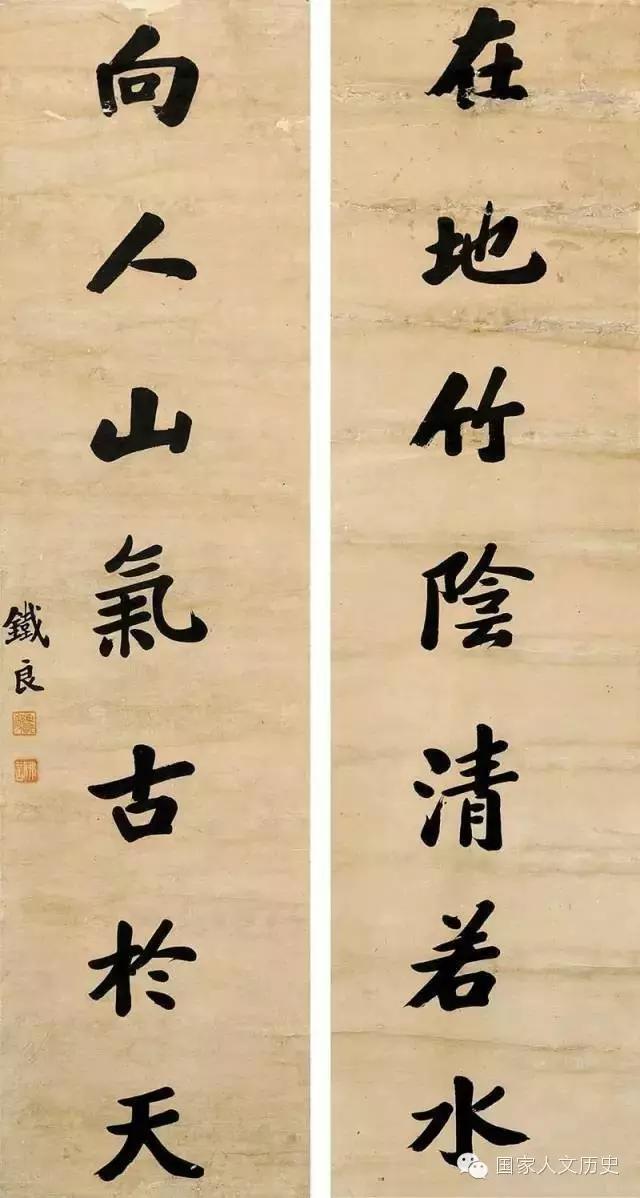 在地竹陰清若水
向人山氣古於天
鐵良
国家人文历史